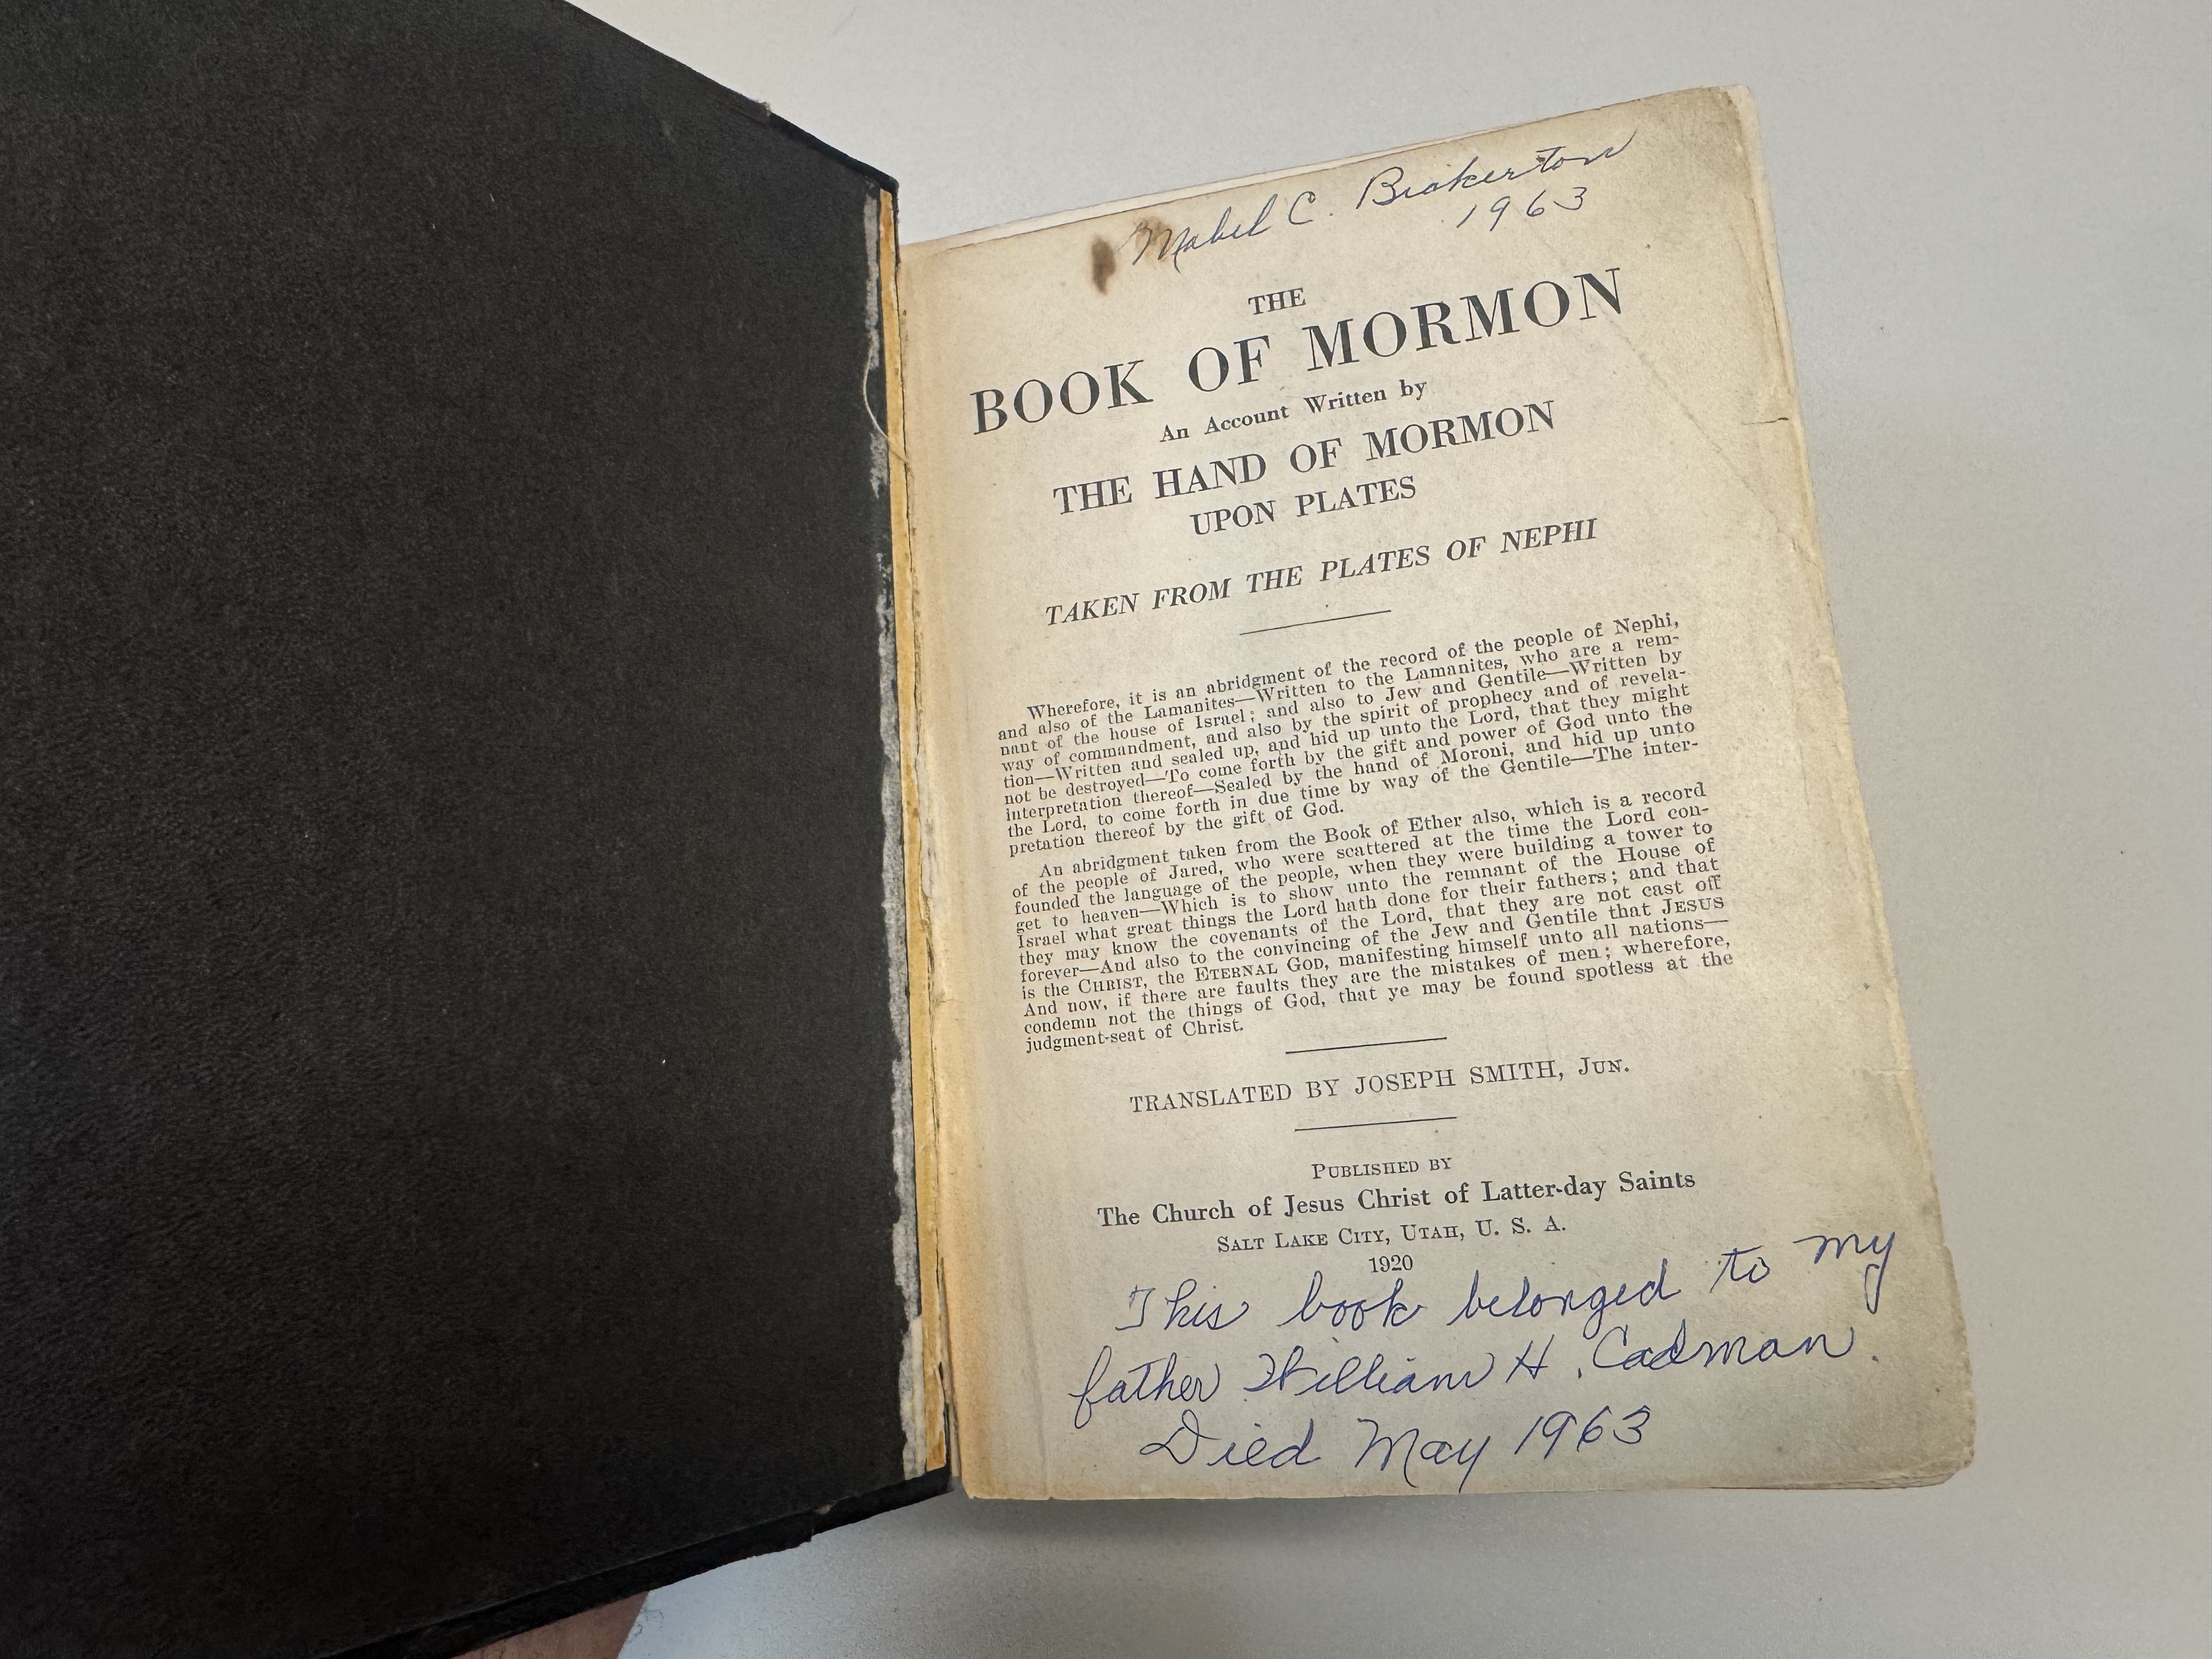 Mabel C. Bickerton
1963
THE
BOOK OF MORMON
An Account Written by
THE HAND OF MORMON
UPON PLATES
TAKEN FROM THE PLATES OF NEPHI
Wherefore, it is an abridgment of the record of the people of Nephi,
and also of the Lamanites—Written to the Lamanites, who are a rem-
nant of the house of Israel; and also to Jew and Gentile—Written by
way of commandment, and also by the spirit of prophecy and of revela-
tion—Written and sealed up, and hid up unto the Lord, that they might
not be destroyed—To come forth by the gift and power of God unto the
interpretation thereof—Sealed by the hand of Moroni, and hid up unto
the Lord, to come forth in due time by way of the Gentile—The inter-
pretation thereof by the gift of God.
An abridgment taken from the Book of Ether also, which is a record
of the people of Jared, who were scattered at the time the Lord con-
founded the language of the people, when they were building a tower to
get to heaven—Which is to show unto the remnant of the House of
Israel what great things the Lord hath done for their fathers; and that
they may know the covenants of the Lord, that they are not cast off
forever—And also to the convincing of the Jew and Gentile that JESUS
is the CHRIST, the ETERNAL GOD, manifesting himself unto all nations—
And now, if there are faults they are the mistakes of men; wherefore,
condemn not the things of God, that ye may be found spotless at the
judgment-seat of Christ.
TRANSLATED BY JOSEPH SMITH, JUN.
PUBLISHED BY
The Church of Jesus Christ of Latter-day Saints
SALT LAKE CITY, UTAH, U. S. A.
1920
This book belonged to my
father William H. Cadman.
Died May 1963